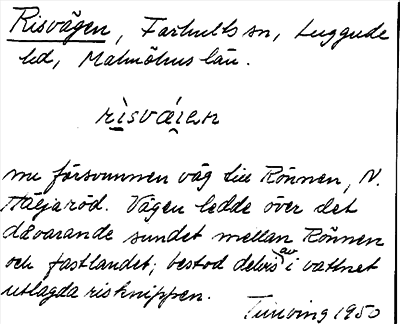 Risvägen, Farhults sn, Luggude
hd, Malmöhus län.
risvǽien
nu försvunnen väg till Rönnen, N.
Häljaröd. Vägen ledde över det
dåvarande sundet mellan Rönnen
och fastlandet; bestod delvis av i vattnet
utlagda risknippen.
1950